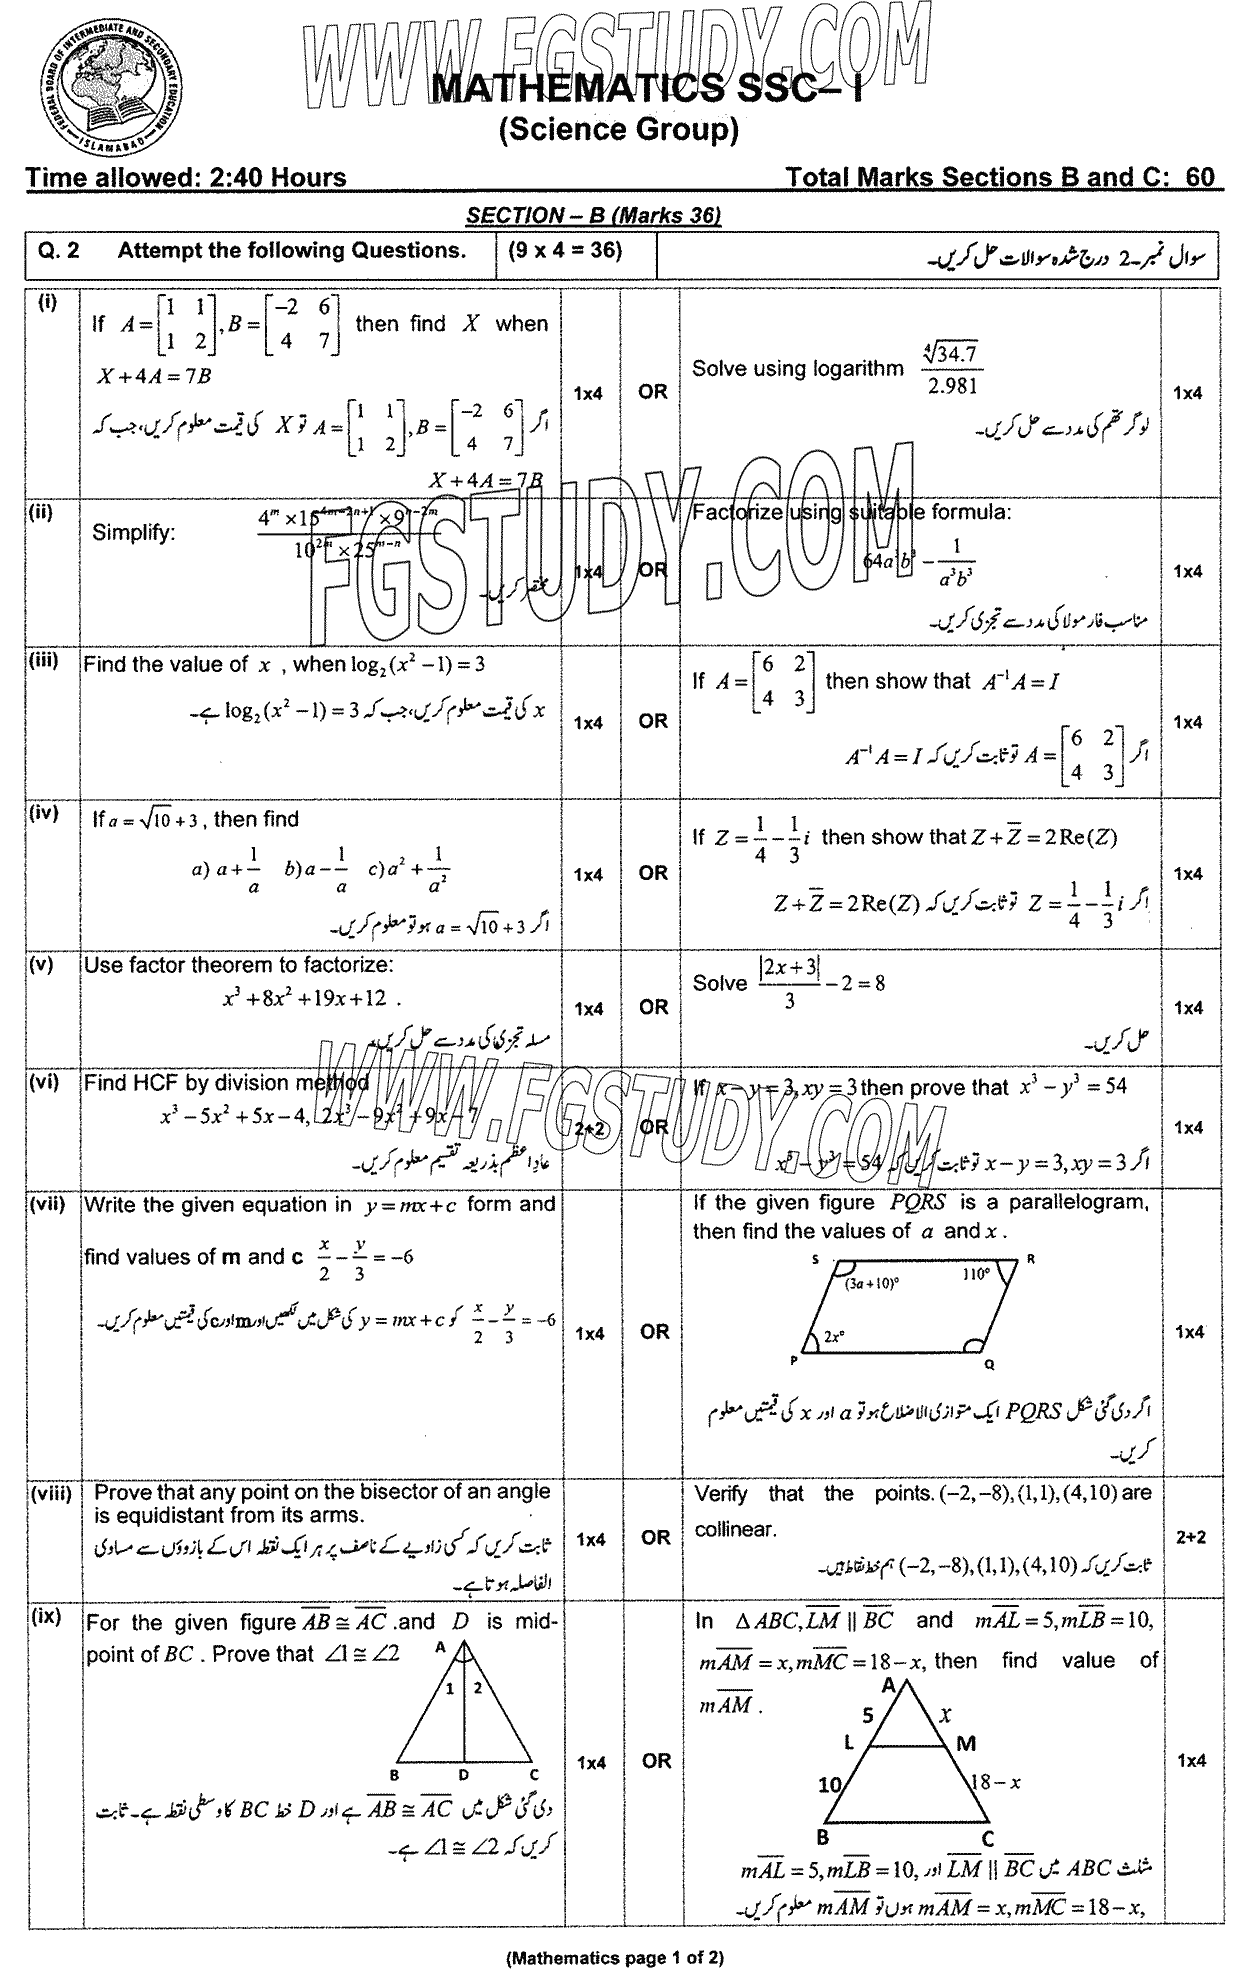 WWW.FGSTUDY.COM
FEDERAL BOARD OF INTERMEDIATE AND SECONDARY EDUCATION ISLAMABAD
MATHEMATICS SSC– I
(Science Group)
Time allowed: 2:40 Hours Total Marks Sections B and C: 60
SECTION – B (Marks 36)
Q. 2 Attempt the following Questions. (9 x 4 = 36) سوال نمبر۔2 درج شدہ سوالات حل کریں۔
(i) If A = [1 1; 1 2], B = [−2 6; 4 7] then find X when
X + 4A = 7B
1x4 OR
اگر A = [1 1; 1 2], B = [−2 6; 4 7] تو X کی قیمت معلوم کریں، جب کہ
X + 4A = 7B
Solve using logarithm ∜34.7 / 2.981
لوگر تھم کی مدد سے حل کریں۔
1x4
(ii) Simplify: 4^m × 15^(4m−2n+1) × 9^(n−2m) / 10^(2m) × 25^(m−n)
مختصر کریں۔
1x4 OR
Factorize using suitable formula:
64a³b³ − 1/a³b³
مناسب فارمولا کی مدد سے تجزی کریں۔
1x4
(iii) Find the value of x , when log₂(x² − 1) = 3
x کی قیمت معلوم کریں، جب کہ log₂(x² − 1) = 3 ہے۔
1x4 OR
If A = [6 2; 4 3] then show that A⁻¹A = I
اگر A = [6 2; 4 3] تو ثابت کریں کہ A⁻¹A = I
1x4
(iv) If a = √10 + 3 , then find
a) a + 1/a b) a − 1/a c) a² + 1/a²
اگر a = √10 + 3 ہو تو معلوم کریں۔
1x4 OR
If Z = 1/4 − 1/3 i then show that Z + Z̅ = 2Re(Z)
اگر Z = 1/4 − 1/3 i تو ثابت کریں کہ Z + Z̅ = 2Re(Z)
1x4
(v) Use factor theorem to factorize:
x³ + 8x² + 19x + 12 .
مسلہ تجزی کی مدد سے حل کریں۔
1x4 OR
Solve |2x + 3|/3 − 2 = 8
حل کریں۔
1x4
(vi) Find HCF by division method
x³ − 5x² + 5x − 4, 2x³ − 9x² + 9x − 7
عاد اعظم بذریعہ تقسیم معلوم کریں۔
2+2 OR
If x − y = 3, xy = 3 then prove that x³ − y³ = 54
اگر x − y = 3, xy = 3 تو ثابت کریں کہ x³ − y³ = 54
1x4
(vii) Write the given equation in y = mx + c form and
find values of m and c x/2 − y/3 = −6
x/2 − y/3 = −6 کو y = mx + c کی شکل میں لکھیں اور m اور c کی قیمتیں معلوم کریں۔
1x4 OR
If the given figure PQRS is a parallelogram,
then find the values of a and x .
S R
(3a + 10)° 110°
2x°
P Q
اگر دی گئی شکل PQRS ایک متوازی الاضلاع ہو تو a اور x کی قیمتیں معلوم
کریں۔
1x4
(viii) Prove that any point on the bisector of an angle
is equidistant from its arms.
ثابت کریں کہ کسی زاویے کے ناصف پر ہر ایک نقطہ اس کے بازوؤں سے مساوی
الفاصلہ ہوتا ہے۔
1x4 OR
Verify that the points. (−2, −8), (1, 1), (4, 10) are
collinear.
ثابت کریں کہ (−2, −8), (1, 1), (4, 10) ہم خط نقاط ہیں۔
2+2
(ix) For the given figure A̅B̅ ≅ A̅C̅ .and D is mid-
point of BC . Prove that ∠1 ≅ ∠2
A
1 2
B D C
دی گئی شکل میں A̅B̅ ≅ A̅C̅ ہے اور D خط BC کا وسطی نقطہ ہے۔ ثابت
کریں کہ ∠1 ≅ ∠2 ہے۔
1x4 OR
In Δ ABC, L̅M̅ || B̅C̅ and mA̅L̅ = 5, mL̅B̅ = 10,
mA̅M̅ = x, mM̅C̅ = 18 − x, then find value of
mA̅M̅ .
A
5 x
L M
10 18 − x
B C
مثلث ABC میں L̅M̅ || B̅C̅ اور mA̅L̅ = 5, mL̅B̅ = 10,
mA̅M̅ = x, mM̅C̅ = 18 − x, ہوں تو mA̅M̅ معلوم کریں۔
1x4
FGSTUDY.COM
WWW.FGSTUDY.COM
(Mathematics page 1 of 2)